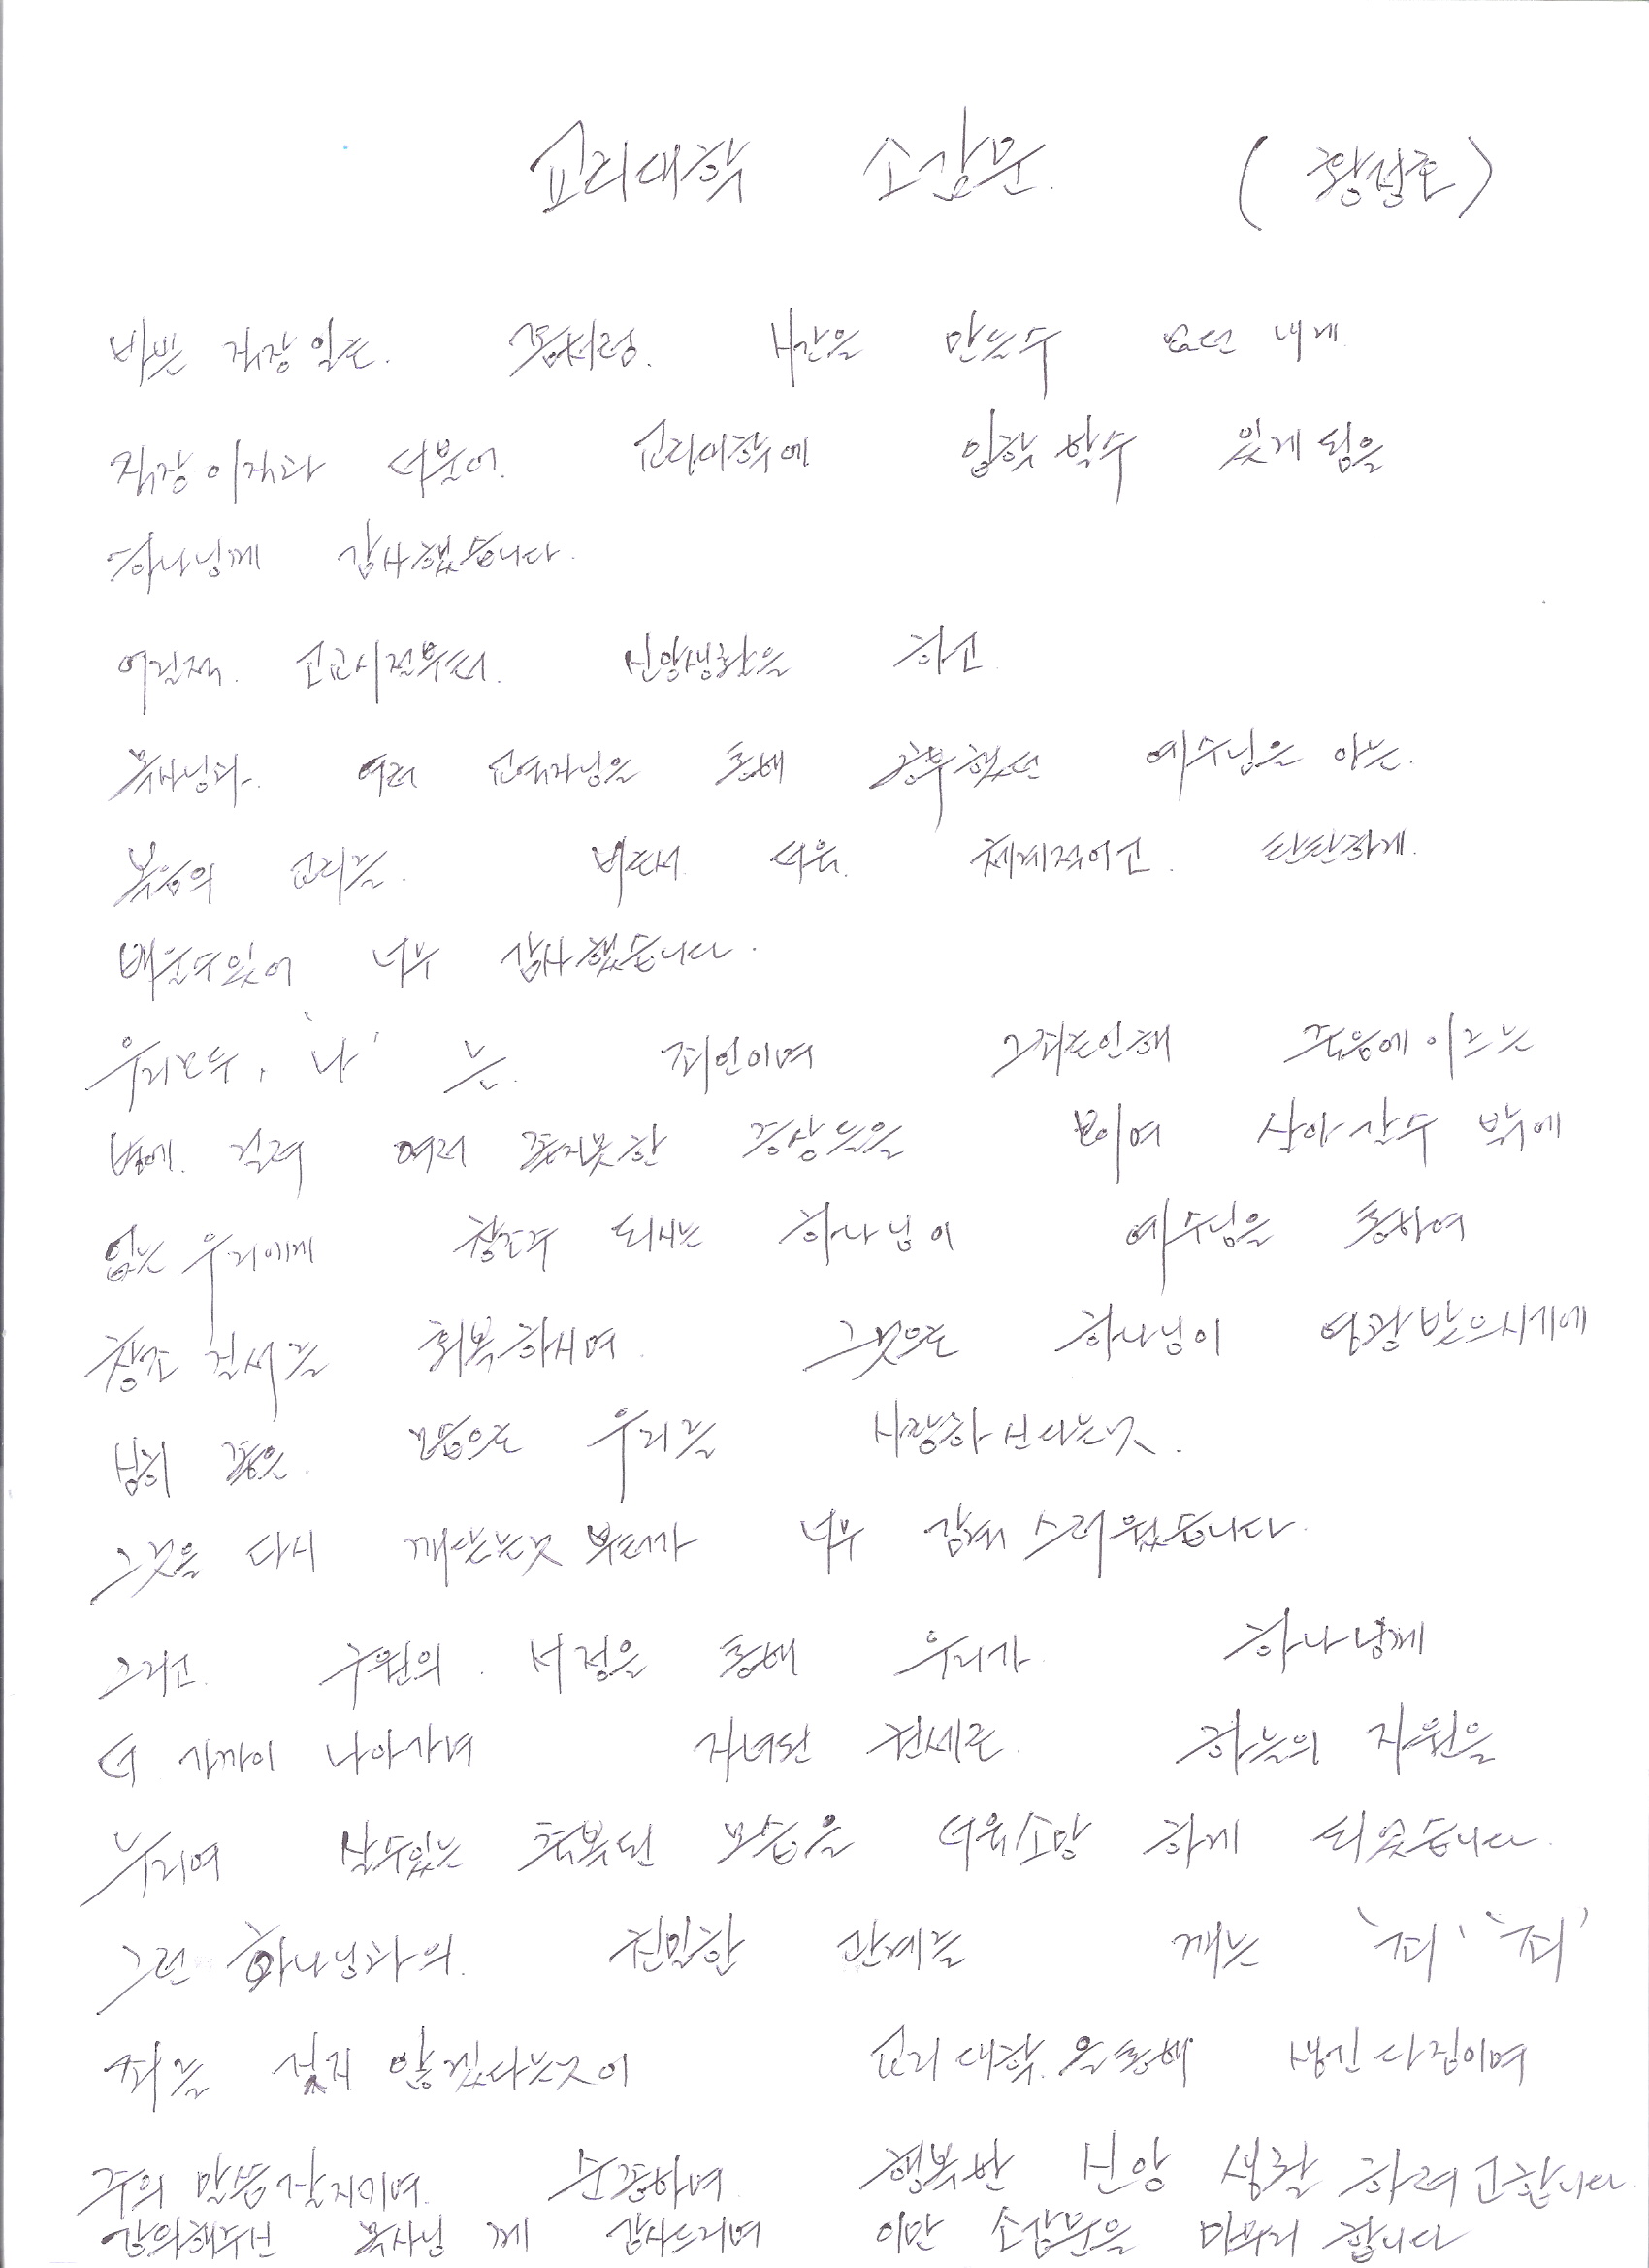 교리대학 소감문. (황섭호)
바쁜 직장일로. 좀처럼. 시간을 만들수 없던 내게.
직장이직과 더불어. 교리대학에 입학할수 있게됨을
하나님께 감사했습니다.
어릴적. 고교시절부터. 신앙생활을 하고.
목사님과. 여러 교역자님을 통해 공부했던 예수님을 아는.
복음의 교리를. 비로서 더욱. 체계적이고. 탄탄하게.
배울수있어 너무 감사했습니다.
우리모두, '나' 는. 죄인이며 그죄로인해 죽음에이르는
병에. 걸려 여러 좋지못한 증상들을 보이며 살아갈수 밖에
없는 우리에게 창조주 되시는 하나님이 예수님을 통하여
창조 질서를 회복하시며. 그것으로 하나님이 영광받으시기에
심히 좋은. 마음으로 우리를 사랑하신다는것.
그것을 다시 깨닫는것 부터가 너무 감격스러웠습니다.
그리고. 구원의. 서정을 통해 우리가 하나님께
더 가까이 나아가며 자녀된 권세로. 하늘의 자원을
누리며 살수있는 축복된 모습을 더욱소망 하게 되었습니다.
그런 하나님과의. 친밀한 관계를 깨는 '죄' '죄'
죄를 섬기지 않겠다는것이 교리대학.을통해 생긴다짐이며
주의 말씀잘지키며. 순종하며. 행복한 신앙 생활 하려고합니다.
강의해주신 목사님 께 감사드리며 이만 소감문을 마무리 합니다